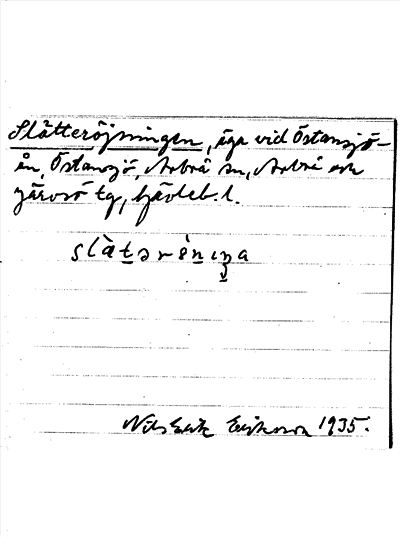 Slätteröjningen, äga vid Östansjö-
ån, Östansjö, Arbrå sn, Arbrå och
Järvsö tg, Gävleb. l.
Nils Erik Eriksson 1935.